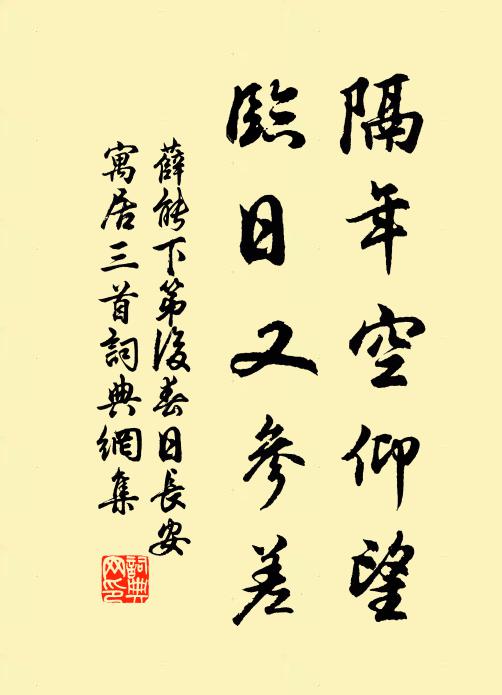 隔年空仰望
臨日又參差
薛能下第後春日長安
寓居三首詞典網集
詞典
网印